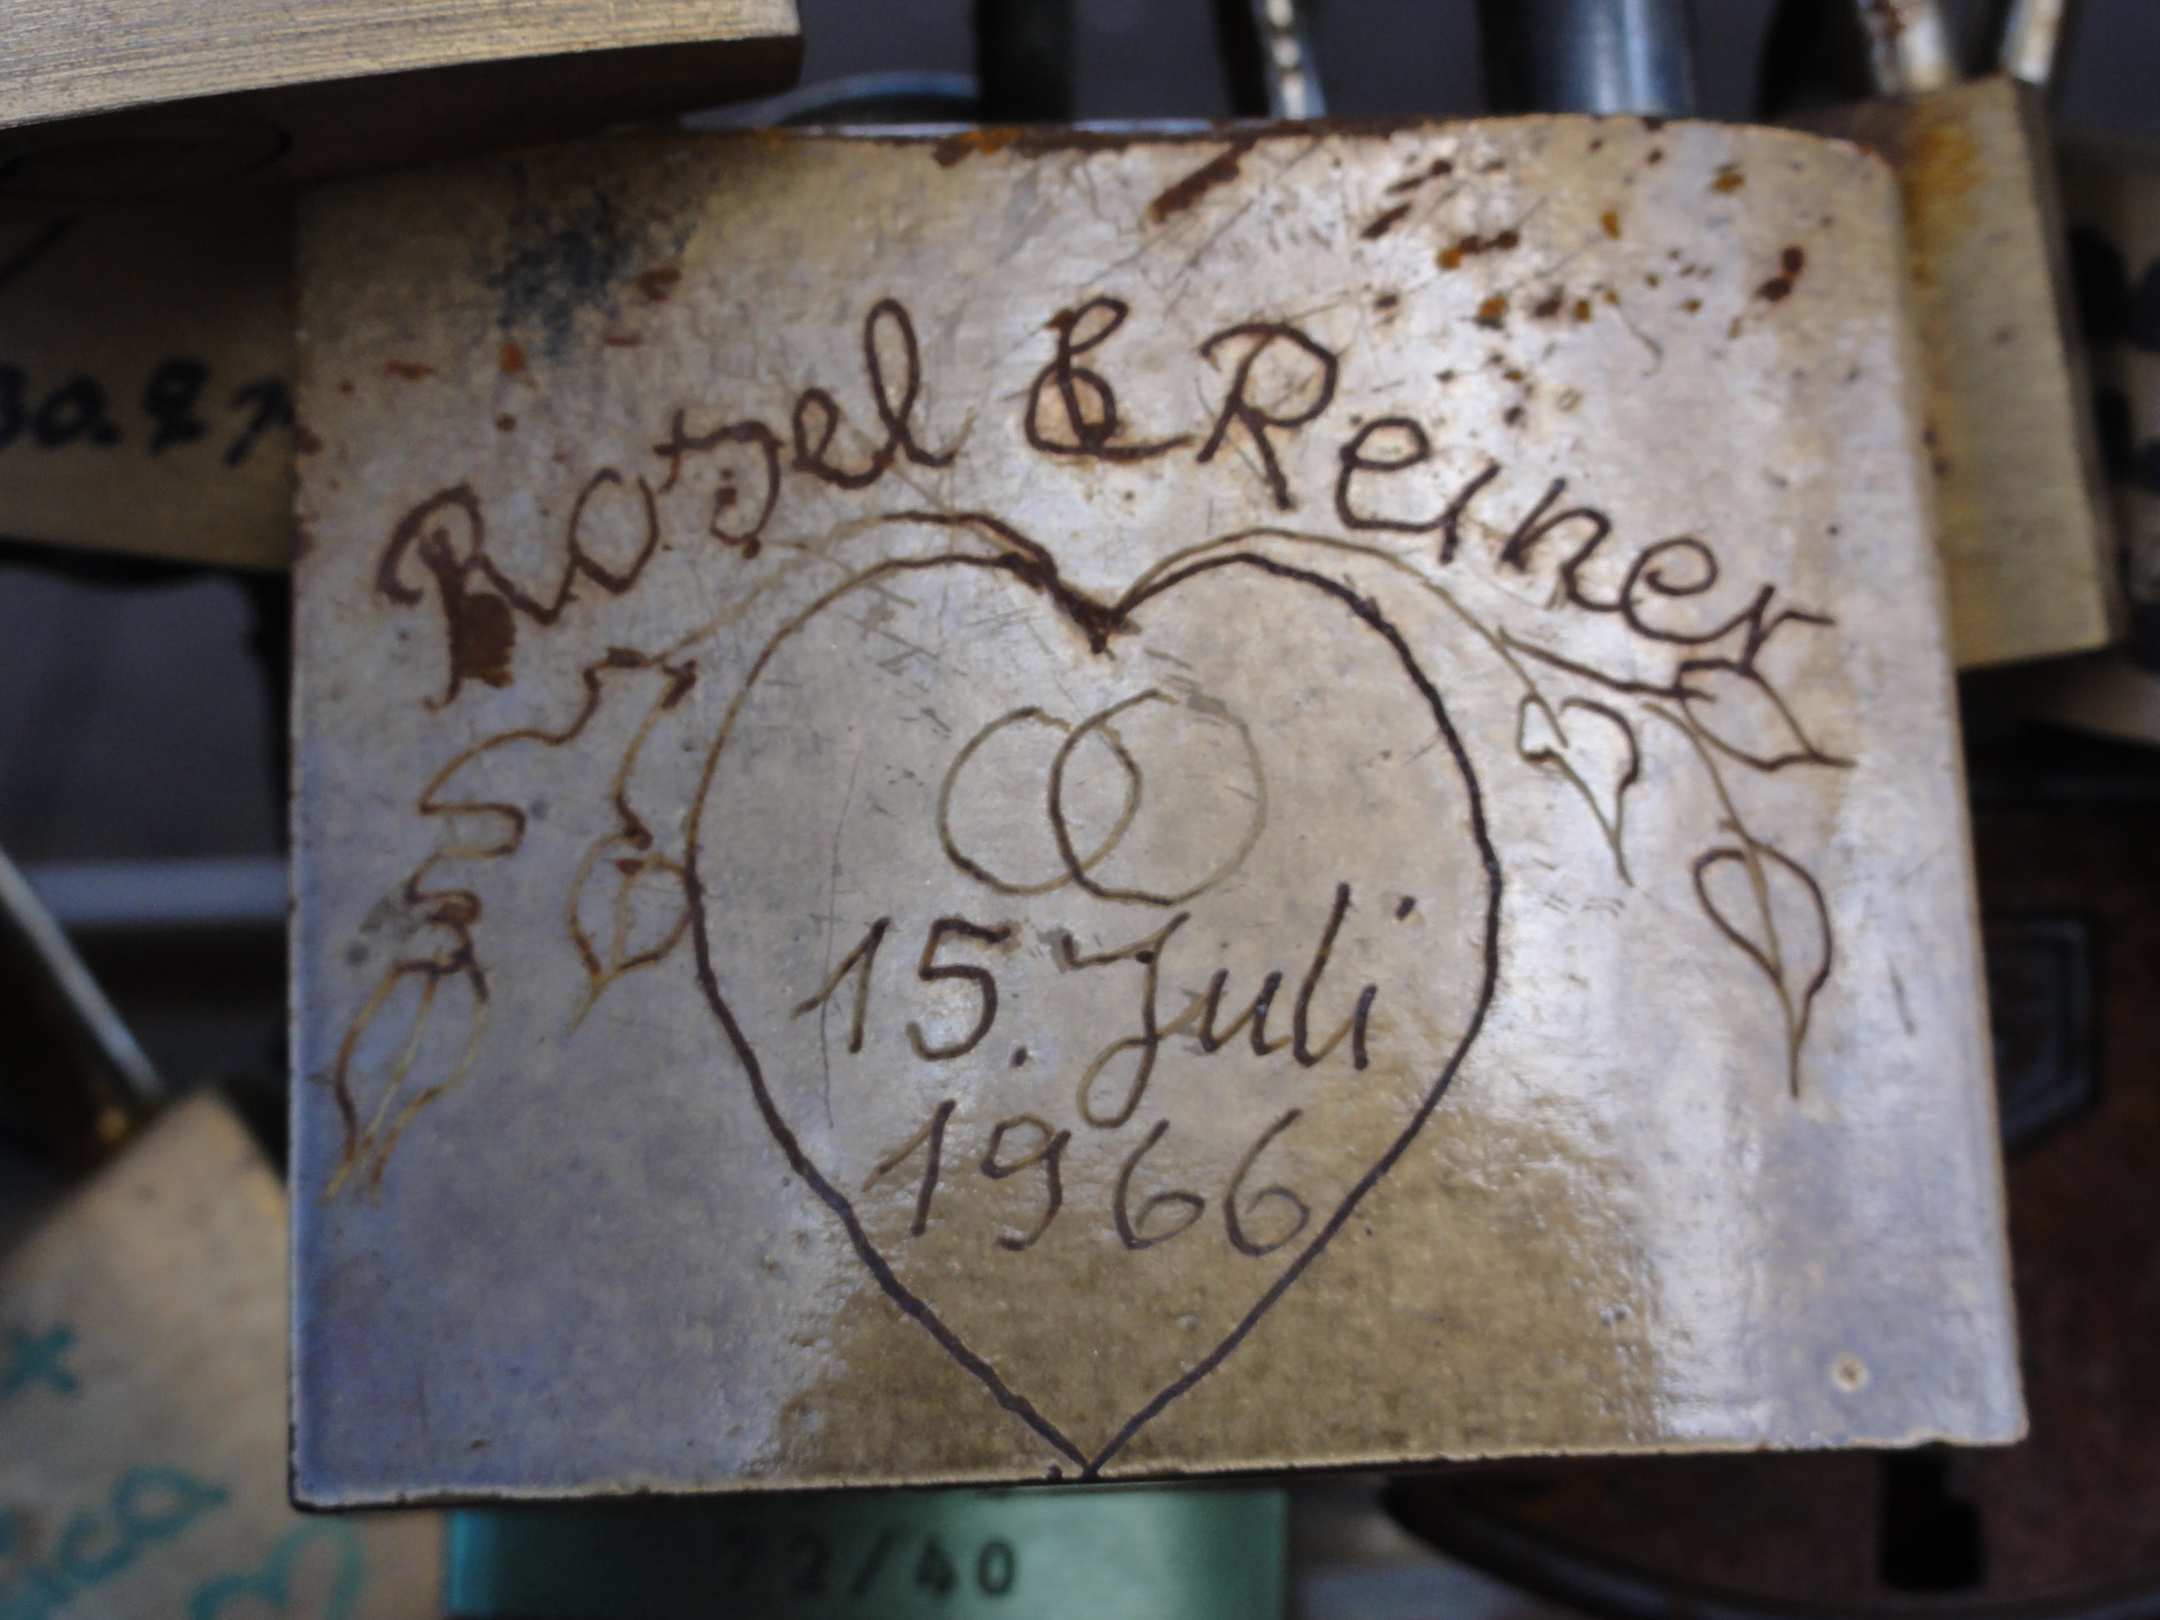 Rosel & Reiner
15. Juli
1966
72/40